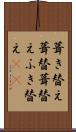 葺き替え
葺替葺替
えふき替
え